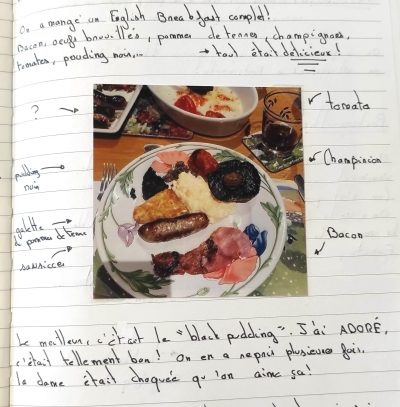 On a mangé un English Breakfast complet!
Bacon, oeufs brouillés, pommes de terres, champignons,
tomates, pouding noir,... → tout était délicieux!
? →
tomato
pudding
noir
Champignon
galette
de pommes de terre
saucisses
Bacon
Le meilleur, c'était le "black pudding". J'ai ADORÉ,
c'était tellement bon! On en a repris plusieurs fois.
la dame était choquée qu'on aime ça!